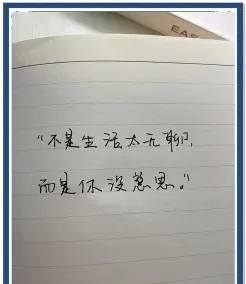 EAS
“不是生活太无聊，
而是你没意思。”